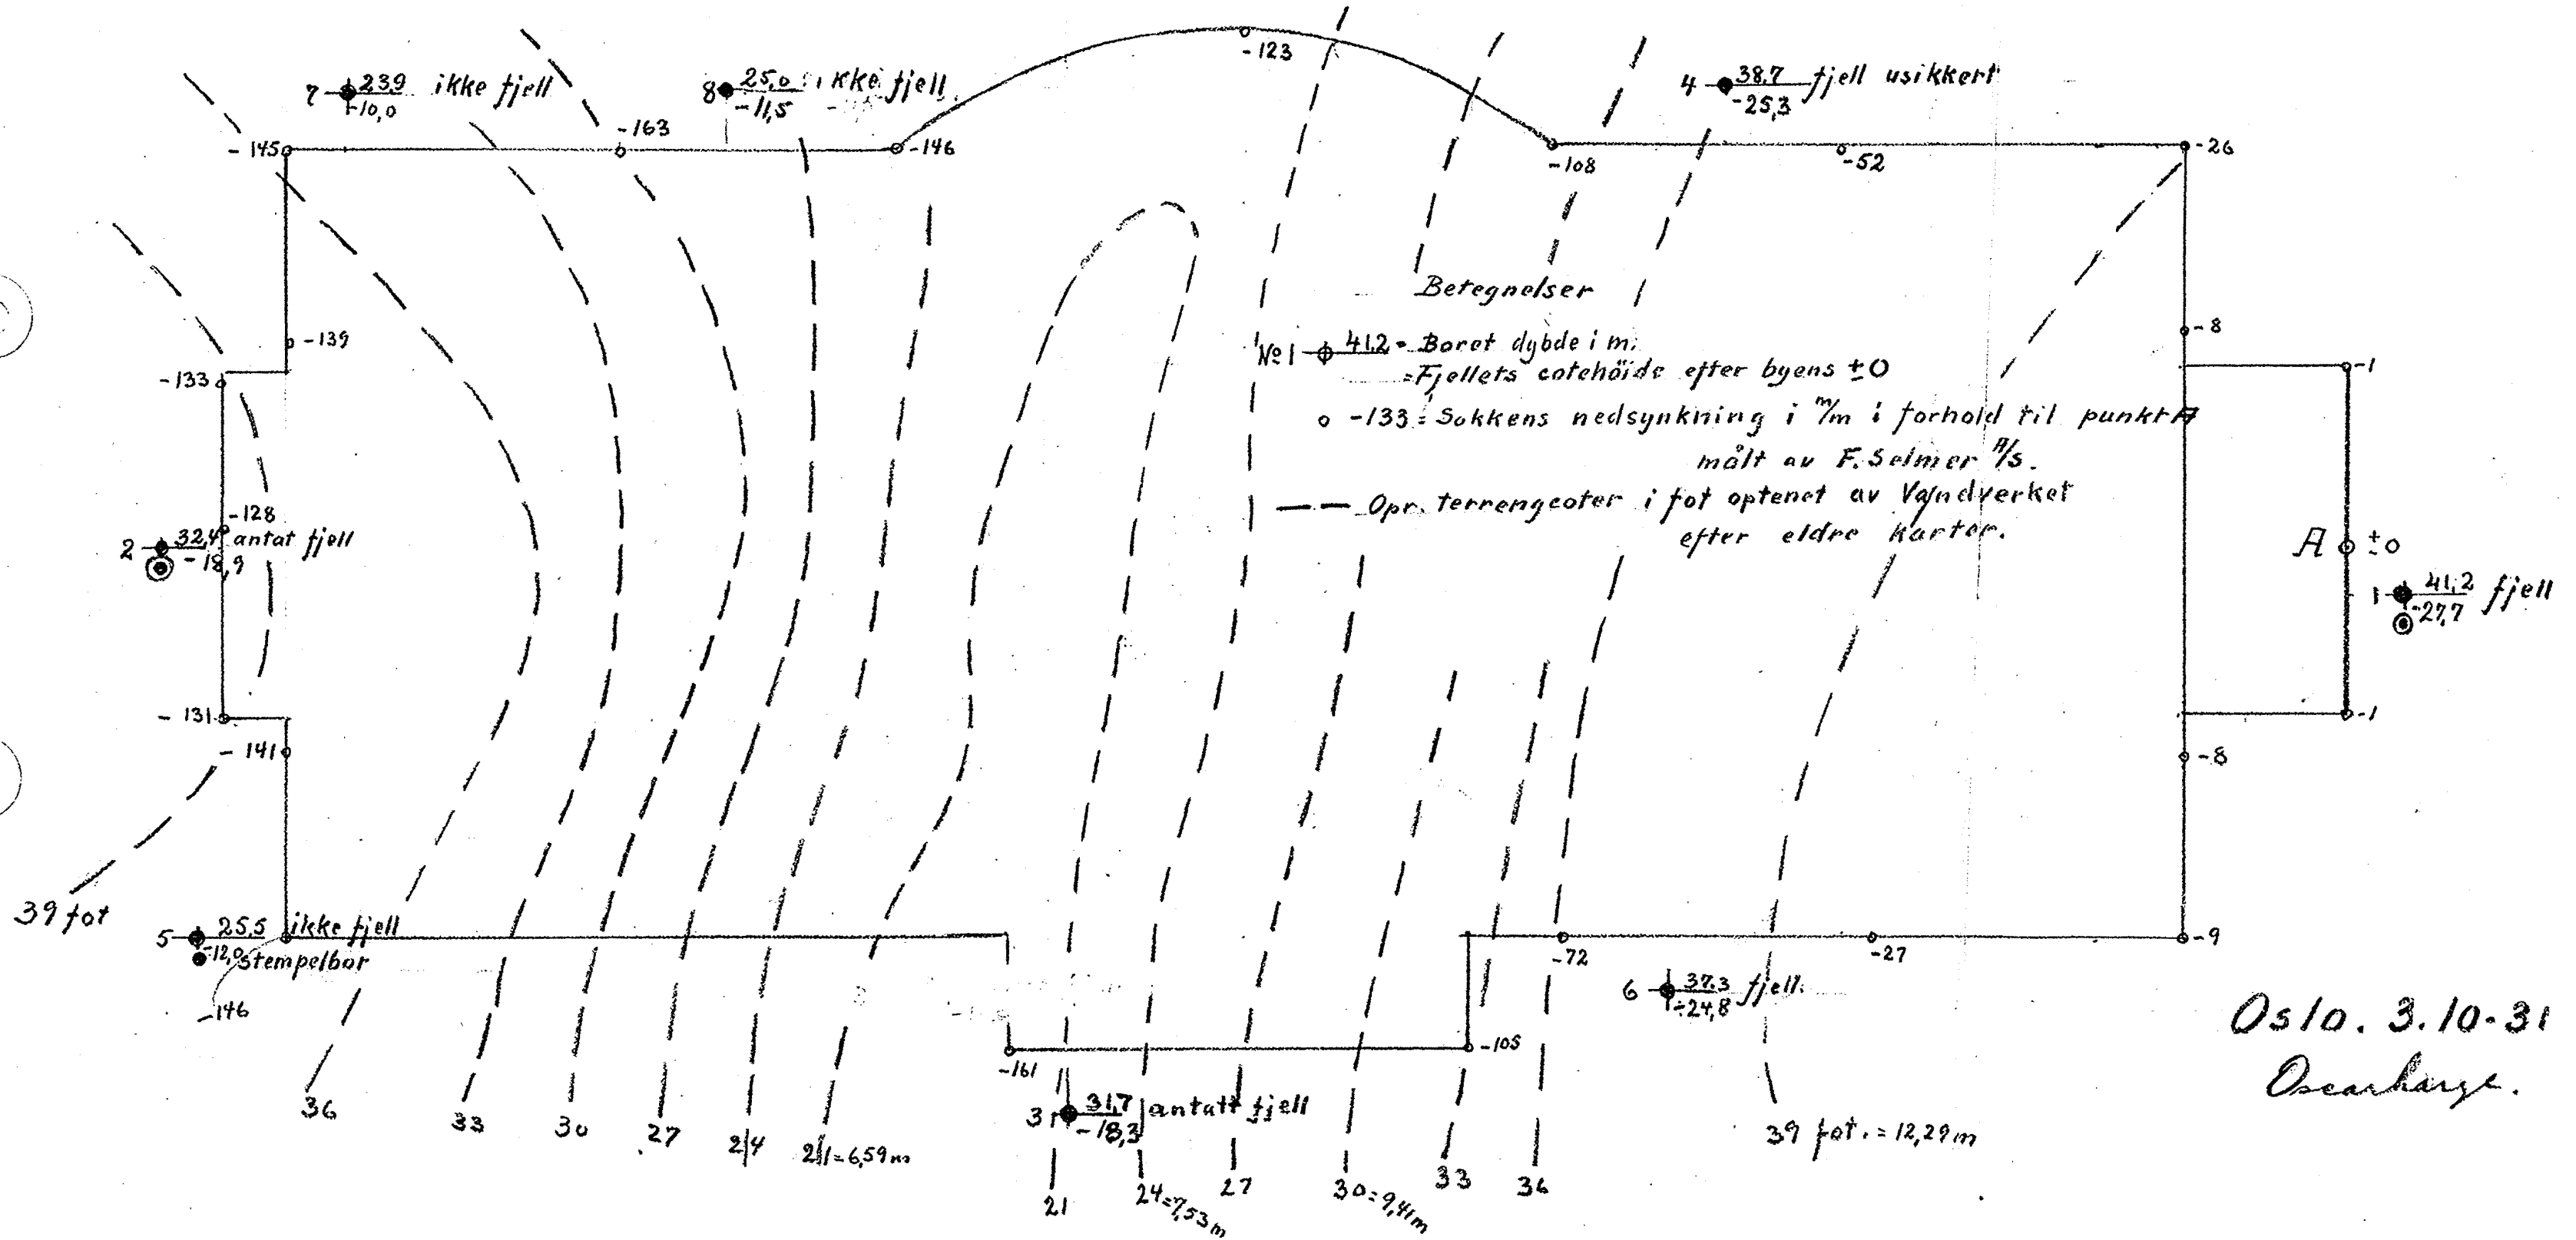 -123
7 23,9 ikke fjell
-10,0
8 25,0 ikke fjell
-11,5
4 38,7 fjell usikkert
-25,3
-163
-145
-146
-108
-52
-26
-139
-133
-8
-1
Betegnelser
No 1 41,2 = Boret dybde i m.
= Fjellets cotehöide efter byens ±0
-133 = Sokkens nedsynkning i m/m i forhold til punkt A
målt av F. Selmer A/S.
Opr. terrengcoter i fot optenet av Vandverket
efter eldre karter.
-128
2 32,4 antat fjell
-18,9
A ±0
1 41,2 fjell
-27,7
-131
-141
-1
-8
39 fot
5 25,5 ikke fjell
-12,0 stempelbor
-146
-72
-27
-9
6 37,3 fjell.
÷24,8
-161
-105
3 31,7 antatt fjell
-18,3
Oslo. 3.10-31
36
33
30
27
24
21=6,59m
21
24=7,53m
27
30=9,41m
33
36
39 fot. = 12,29m